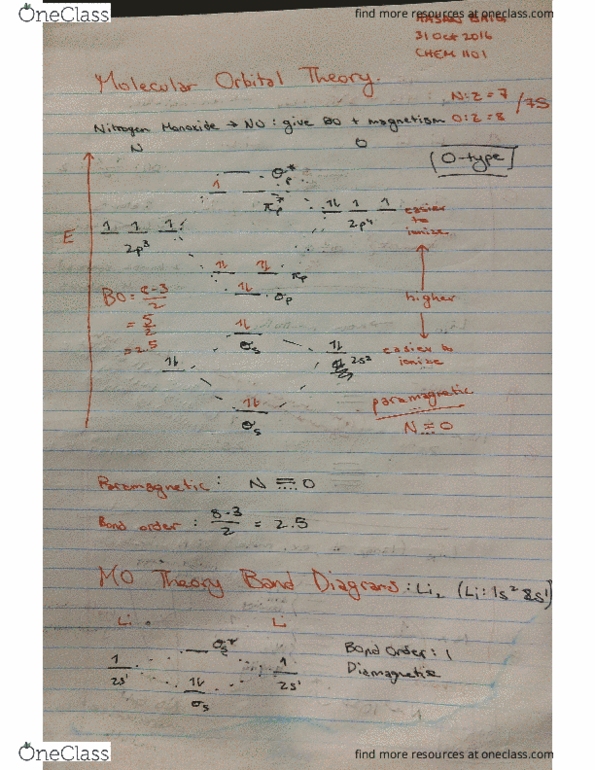 OneClass
find more resources at oneclass.com
31 Oct 2016
CHEM 1101
Molecular Orbital Theory.
N: Z = 7
O: Z = 8
/75
Nitrogen Monoxide → NO : give BO + magnetism
N O
O-type
σ*p
1
π*p
1 1 1
2p³
1l 1 1
2p⁴
easier to ionize
E
1l 1l πp
1l σp
BO = 8-3/2
= 5/2
= 2.5
higher
1l
σs
1l
1l
2s²
easier to ionize
1l
σs
paramagnetic
N O
Paramagnetic : N O
Bond order : 8-3/2 = 2.5
MO Theory Band Diagrams : Li₂ (Li: 1s² 2s¹)
Li Li
σs*
1
2s¹
1
2s¹
1l
σs
Bond Order : 1
Diamagnetic
OneClass
find more resources at oneclass.com